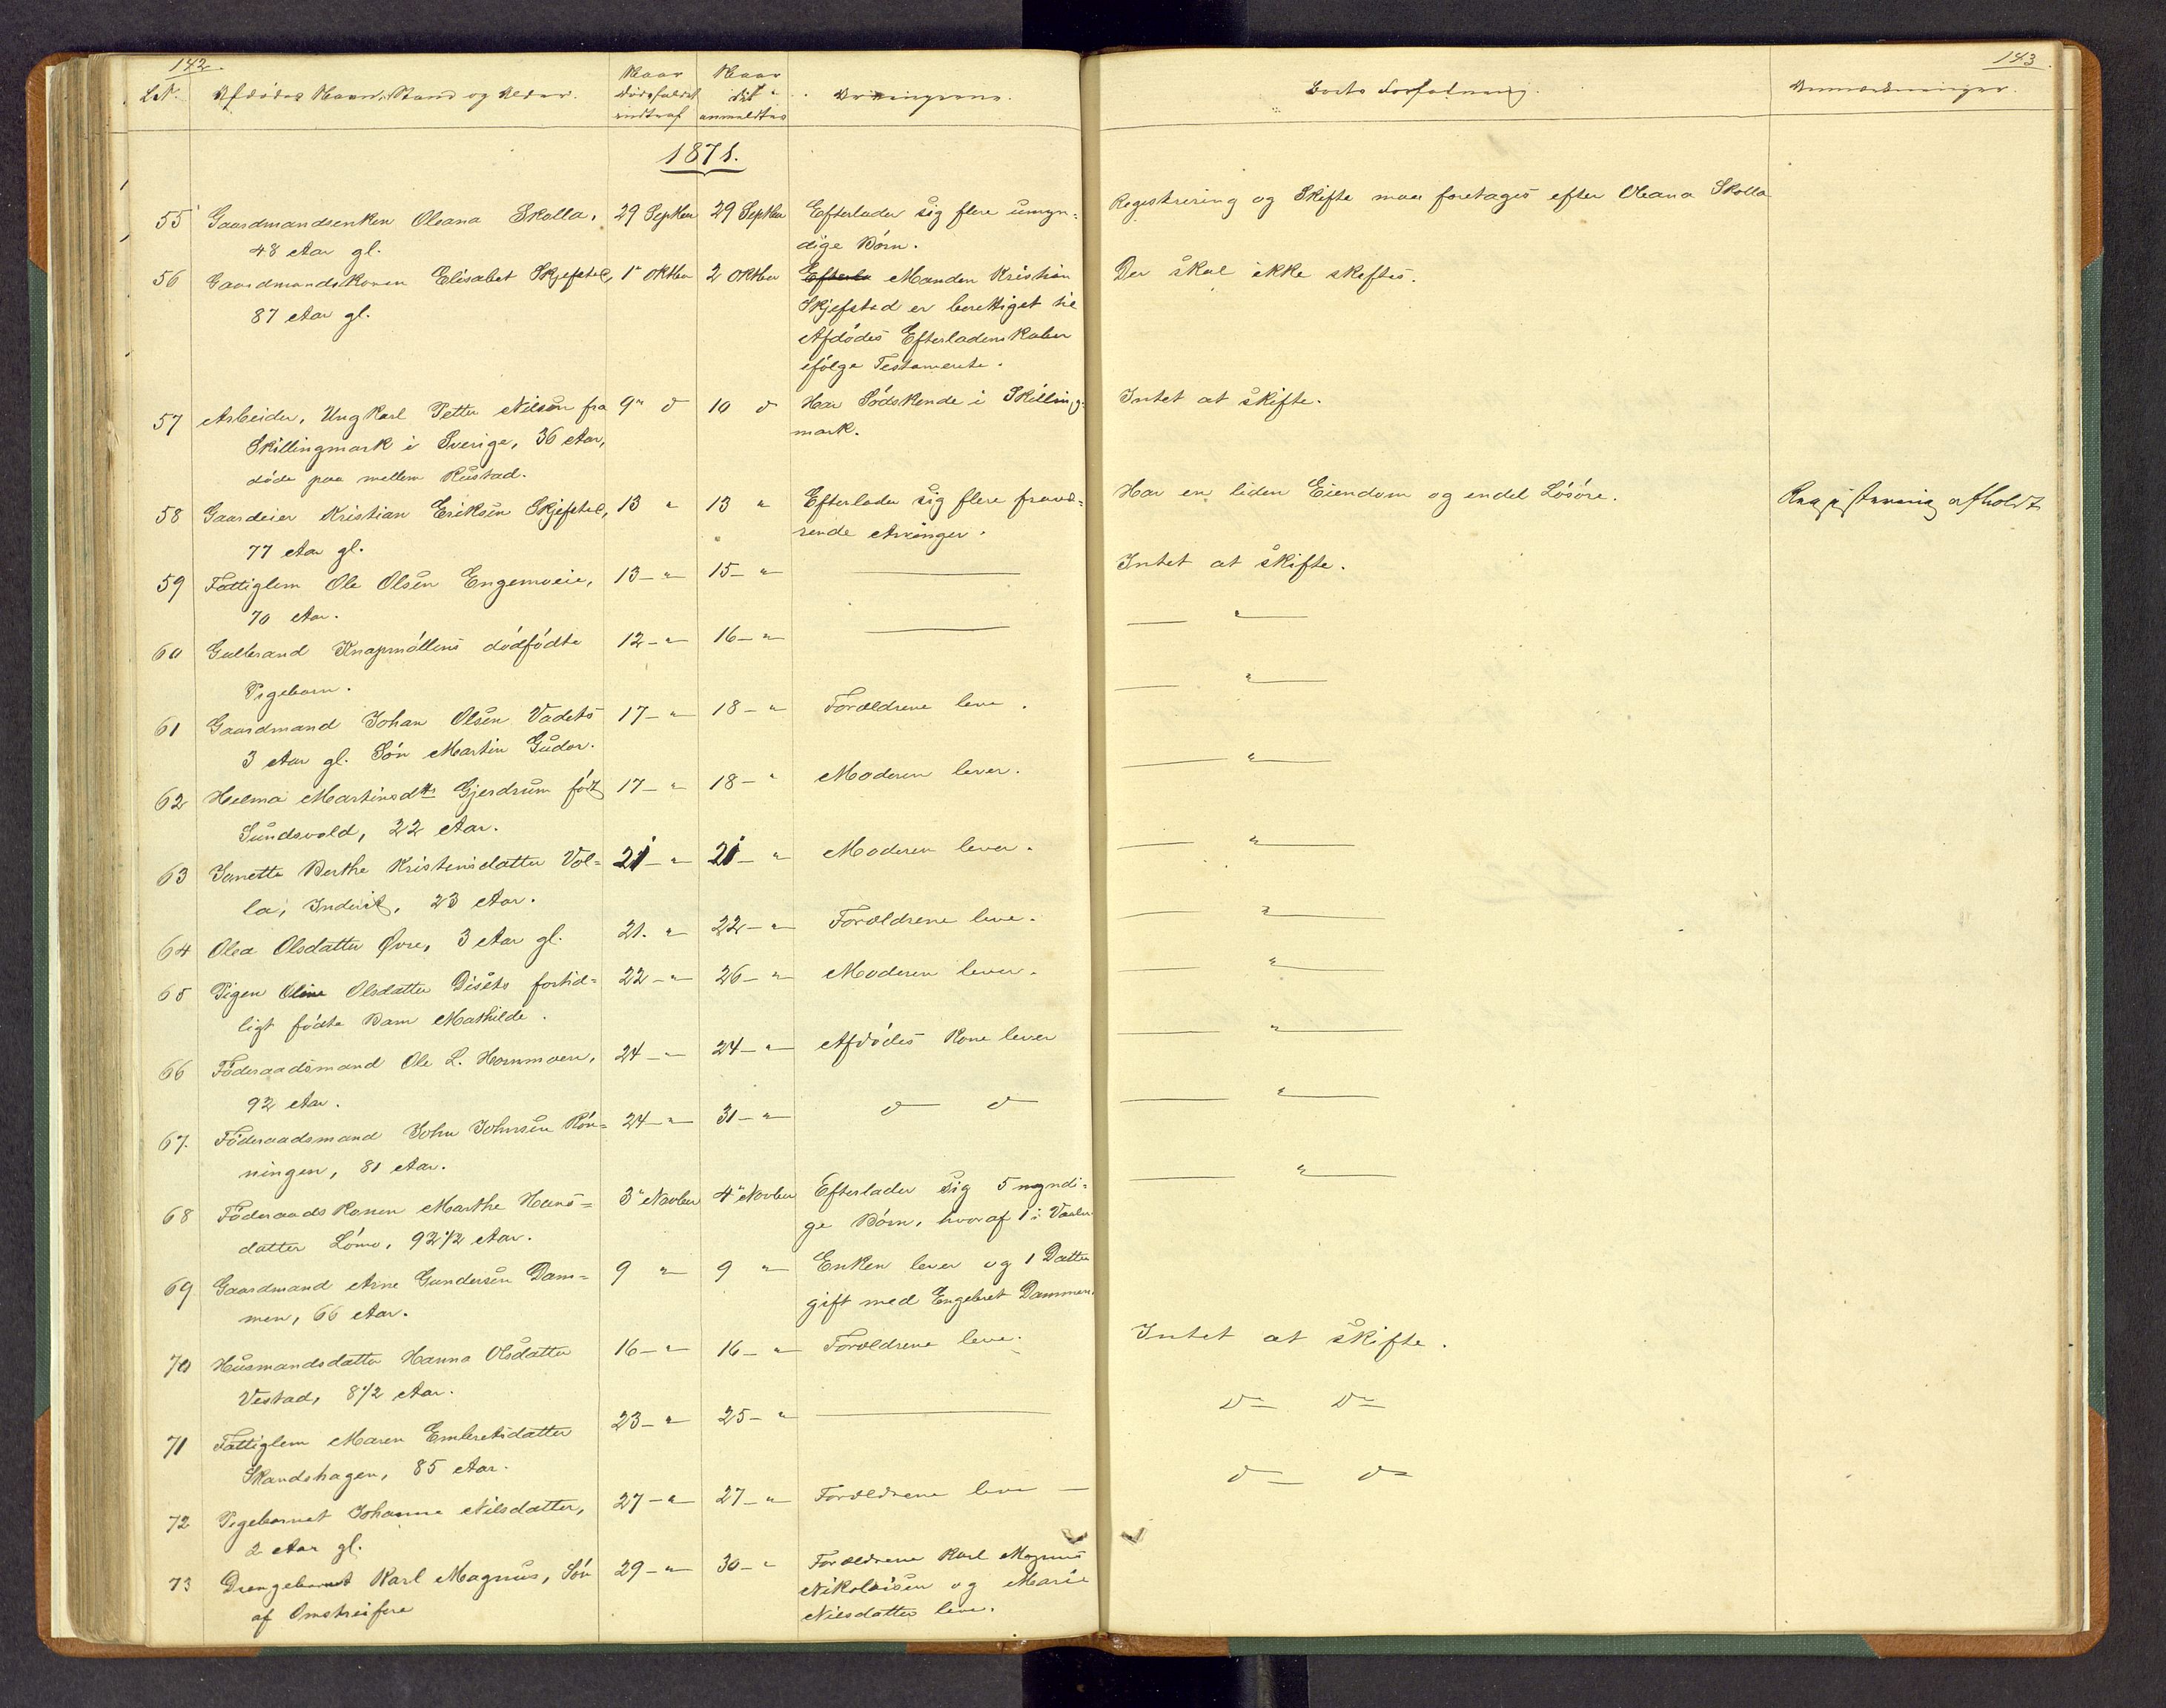 142.
143
L.N.
Afdødes Navn, Stand og Alder.
Naar Dødsfaldet indtraf
Naar det anmeldtes
Arvingerne.
Boets Forfatning.
Anmærkninger.
1871.
55 Gaardmandsenken Oleana Skolla, 29 Septber 29 Septber Efterlader sig flere umyn- Registrering og Skifte maa foretages efter Oleana Skolla
48 Aar gl. dige Børn.
56 Gaardmandskonen Elisabet Skjefstad, 1ste Oktber 2 Oktber Efterla Manden Kristian Der skal ikke skiftes.
87 Aar gl. Skjefstad er berettiget til
Afdødes Efterladenskaber
ifølge Testamente.
57 Arbeider, Ungkarl Petter Nilsen fra 9" d 10 d Har Södskende i Skilling- Intet at skifte.
Skillingmark i Sverige, 36 Aar, mark.
døde paa mellem Rustad.
58 Gaardeier Kristian Eriksen Skjefstad, 13 " 13 " Efterlader sig flere fravæ- Har en liden Eiendom og endel Løsøre. Registrering afholdt
77 Aar gl. rende Arvinger.
59 Fattiglem Ole Olsen Engemoeie, 13 - " 15 - " — Intet at skifte.
70 Aar. — " —
60 Gulbrand Knapmöllens dødfødte 12 - " 16 - " —
Pigebarn. — " —
61 Gaardmand Johan Olsen Vadets 17 - " 18 - " Forældrene leve.
3 Aar gl. Sön Martin Gudor. — " —
62 Helma Martinsdtr Gjerdrum født 17 - " 18 - " Moderen lever.
Sundsvold, 22 Aar. — " —
63 Janette Berthe Kristensdatter Vol- 21 - " 21 - " Moderen lever.
la, Inderst, 23 Aar. — " —
64 Olea Olsdatter Øvre, 3 Aar gl. 21. " 22 - " Forældrene leve.
65 Pigen Oline Olsdatter Disets fortid- 22 - " 26 - " Moderen lever. — " —
ligt fødte Barn Mathilde.
66 Föderaadsmand Ole L. Hornmoen, 24 - " 24 - " Afdödes Kone lever — " —
92 Aar.
67. Föderaadsmand John Johnsen Rön- 24 - " 31 - " d d — " —
ningen, 81 Aar.
68 Föderaadskonen Marthe Hans- 3" Novber 4" Novber Efterlader sig 5 myndi- — " —
datter Lömo, 92 1/2 Aar. ge Börn, hvoraf 1 i Vaaler
69 Gaardmand Arne Gundersen Dam- 9 " 9 " Enken lever og 1 Datter
men, 66 Aar. gift med Engebret Dammen.
70 Husmandsdatter Hanna Olsdatter 16 - " 16 - " Forældrene leve. Intet at skifte.
Vestad, 8 1/2 Aar.
71 Fattiglem Maren Embretsdatter 23 - " 25 - " — d d
Skandshagen, 85 Aar.
72 Pigebarnet Johanne Nilsdatter, 27 - " 27 - " Forældrene leve — d d
2 Aar gl.
73 Drengebarnet Karl Magnus, Sön 29 - " 30 - " Forældrene Karl Magnus
af Omstreifere Nikolaisen og Marie
Nilsdatter leve.